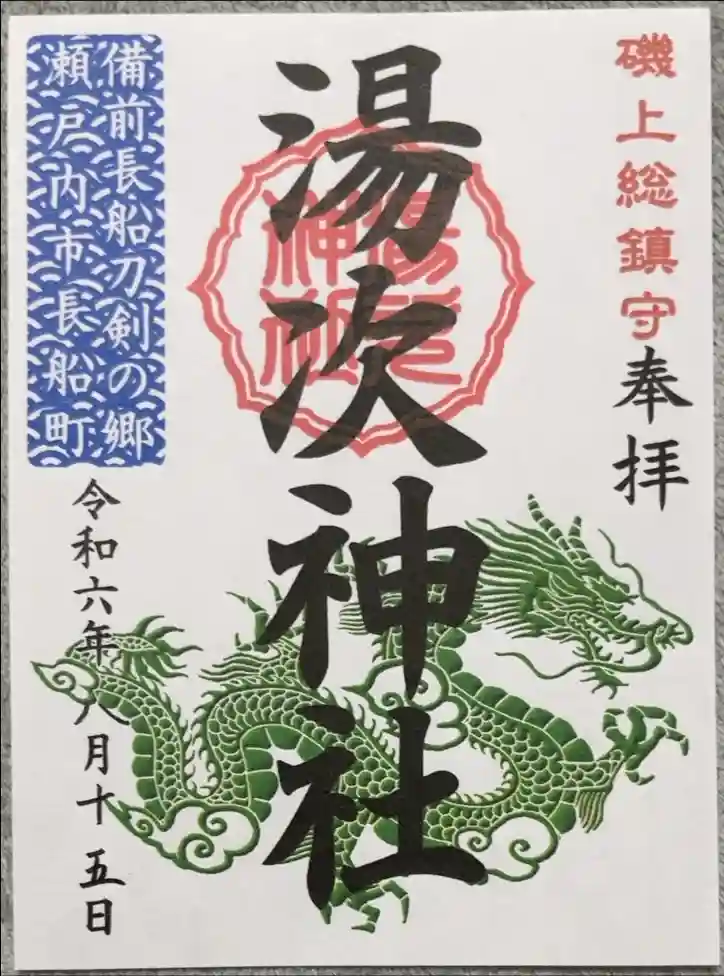 磯上総鎮守奉拝
湯次神社
湯次
神社
備前長船刀剣の郷
瀬戸内市長船町
令和六年八月十五日